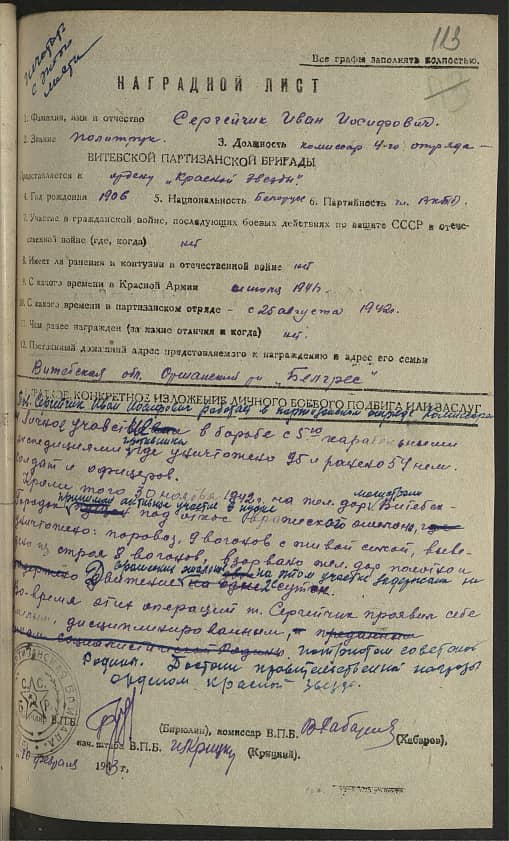 113
Все графы заполнять полностью.
НАГРАДНОЙ ЛИСТ
1. Фамилия, имя и отчество Сергейчик Иван Иосифович.
2. Звание политрук. 3. Должность комиссар 4-го отряда —
ВИТЕБСКОЙ ПАРТИЗАНСКОЙ БРИГАДЫ
Представляется к ордену „Красной Звезды"
4. Год рождения 1906 5. Национальность Белорус 6. Партийность
7. Участие в гражданской войне, последующих боевых действиях по защите СССР и отече-
ственной войне (где, когда) нет
8. Имеет ли ранения и контузии в отечественной войне нет
9. С какого времени в Красной Армии 1941.
10. С какого времени в партизанском отряде - с 25 августа 1942г.
11. Чем ранее награжден (за какие отличия и когда) нет.
12. Постоянный домашний адрес представляемого к награждению и адрес его семьи
Витебская обл. Оршанский р-н „Белгрес"
КРАТКОЕ КОНКРЕТНОЕ ИЗЛОЖЕНИЕ ЛИЧНОГО БОЕВОГО ПОДВИГА ИЛИ ЗАСЛУГ
Иван Иосифович работает в партизанском отряде комиссаром
Лично участвовал в борьбе с 5ю карательными
экспедициями противника где уничтожено 95 и ранено 54 нем.
солдат и офицеров.
Кроме того 30 ноября 1942г. на жел. дор. магистрали Витебск-
Городок принимал активное участие в пуске под откос вражеского эшелона,
уничтожено: паровоз, 9 вагонов с живой силой, выве-
дено из строя 8 вагонов, взорвано жел. дор. полотно и
Движение на этом участке задержано на
суток.
Во время этих операций т. Сергейчик проявил себя
дисциплинированным, преданным
патриотом советской
Родины. Достоин правительственной награды
орденом Красной Звезды.
В.П.Б. (Бирюлин), комиссар В.П.Б. Хабаров (Хабаров),
нач. штаба В.П.Б. Крицкий (Крицкий).
10 февраля 1943 г,